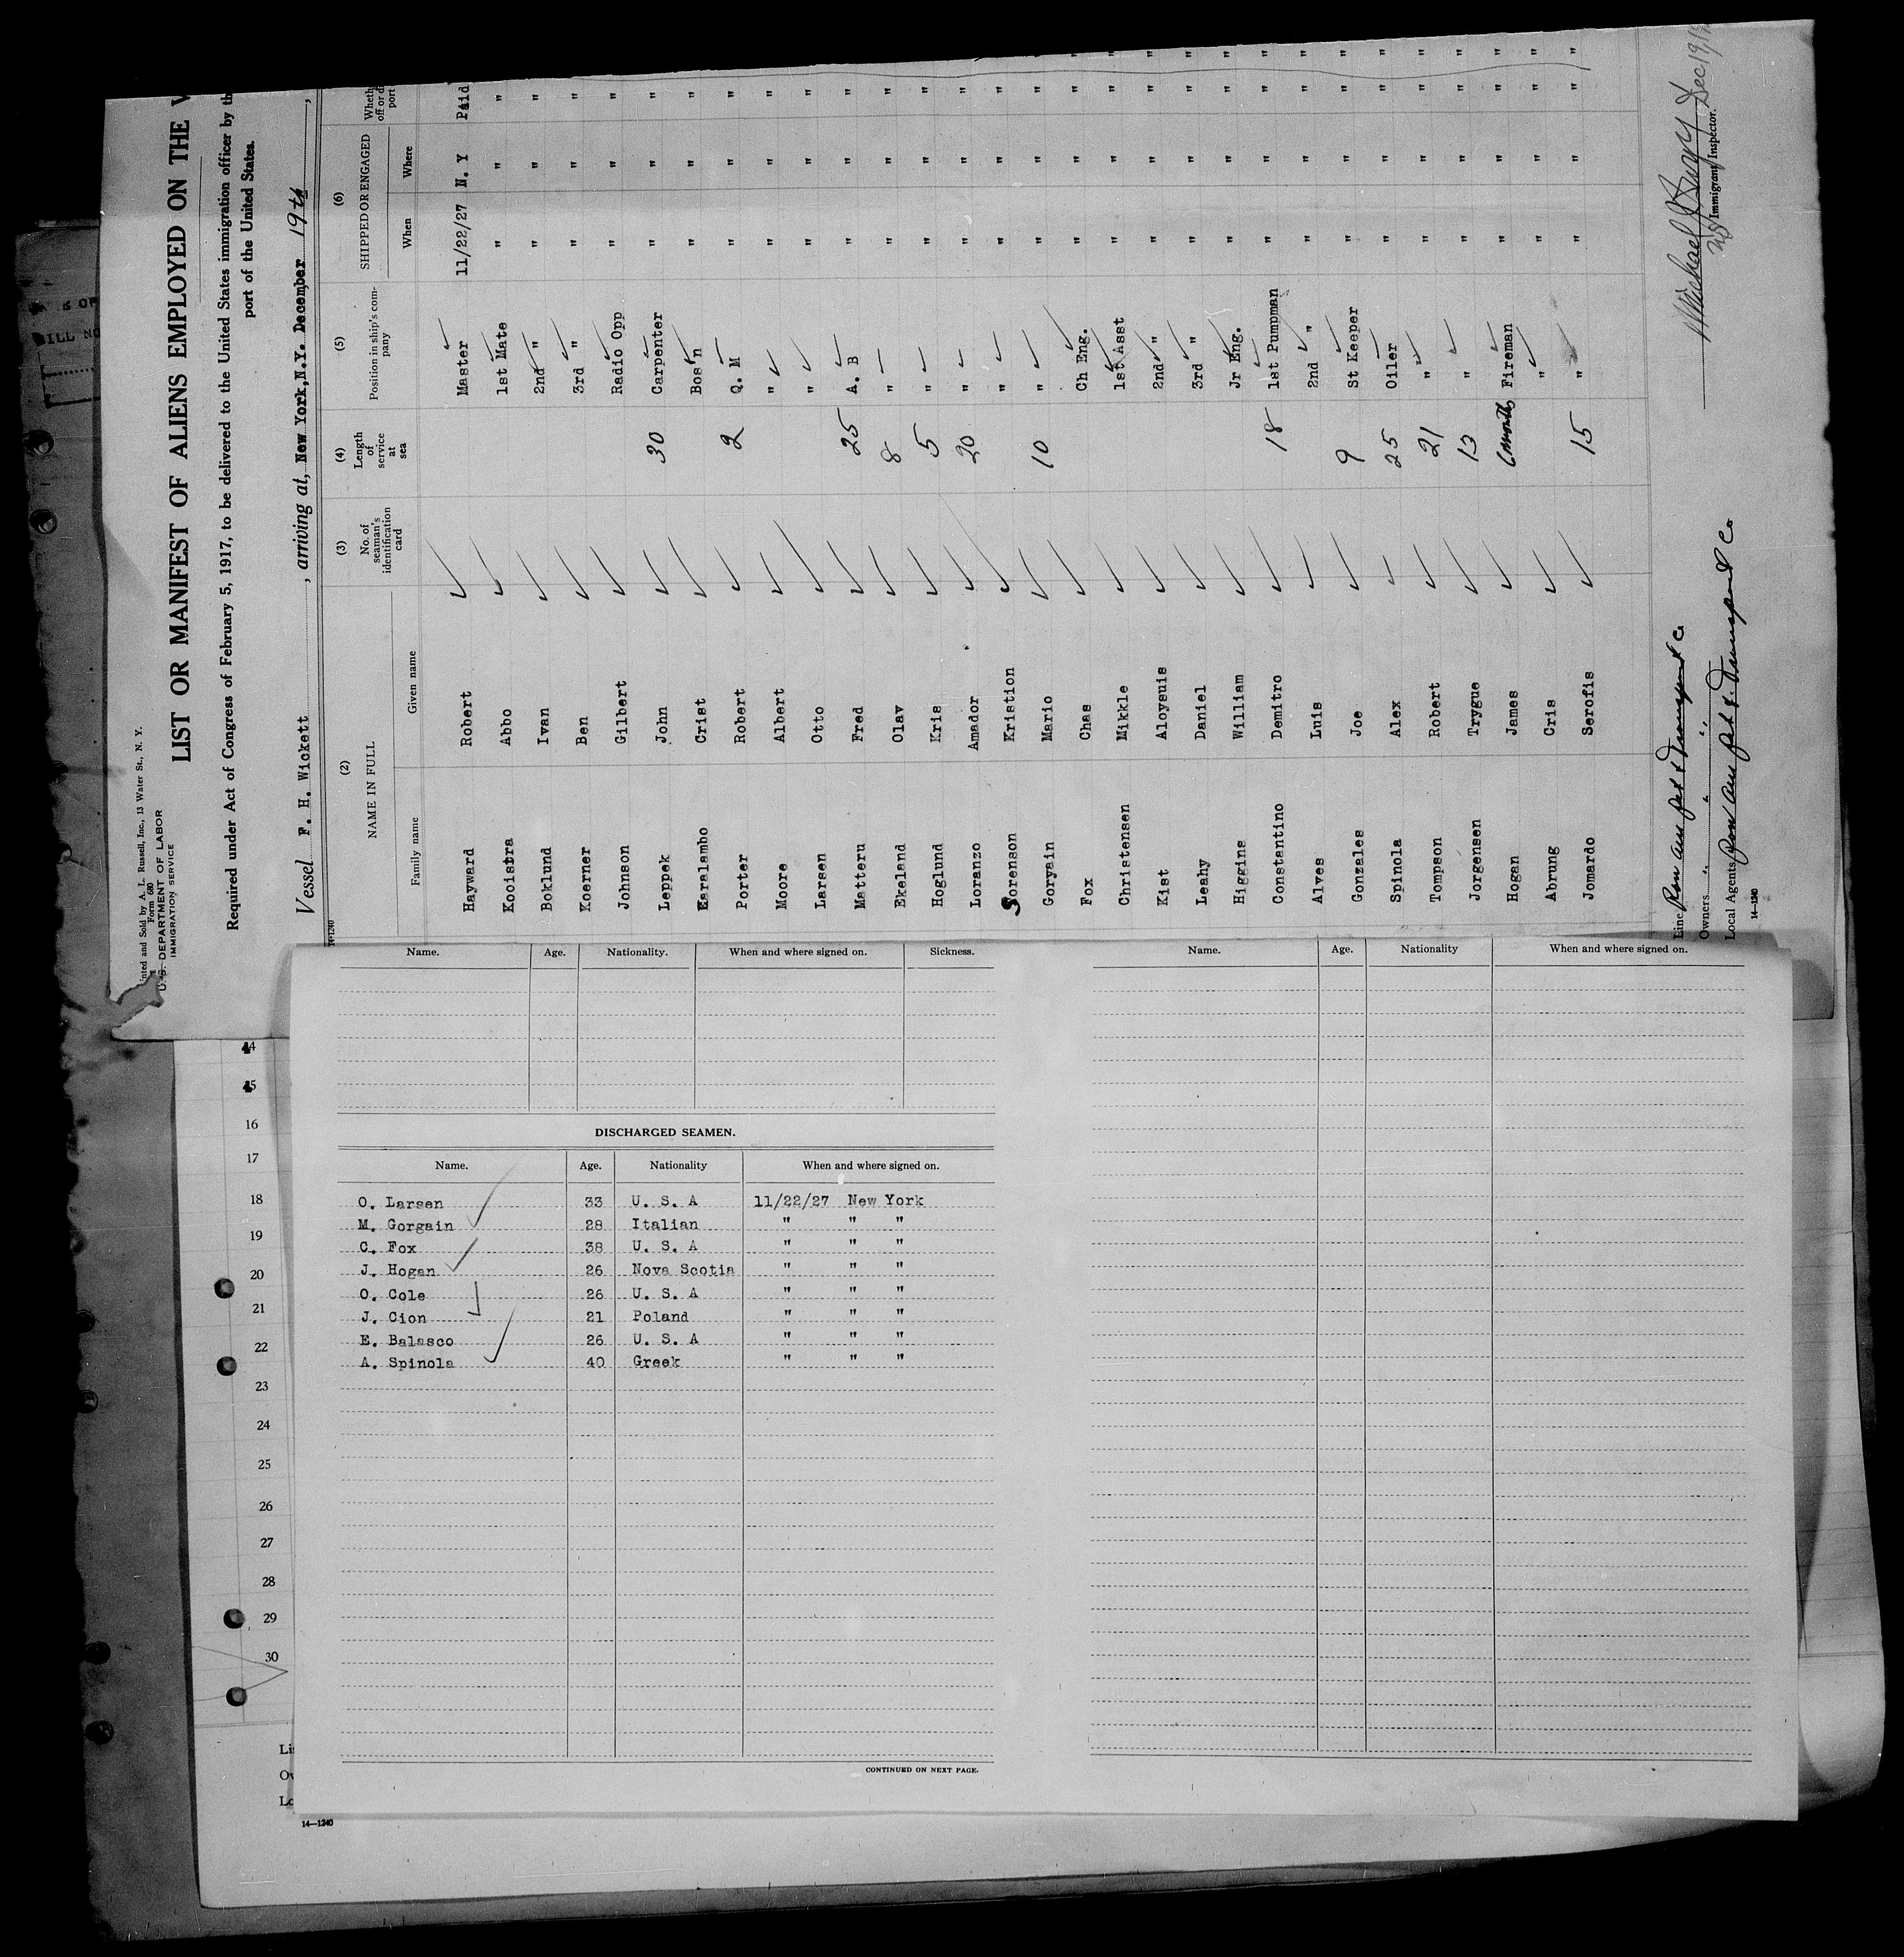 Printed and Sold by A. L. Russell, Inc., 13 Water St., N. Y.
Form 680
U. S. DEPARTMENT OF LABOR
IMMIGRATION SERVICE
LIST OR MANIFEST OF ALIENS EMPLOYED ON THE V
Required under Act of Congress of February 5, 1917, to be delivered to the United States immigration officer by th
port of the United States.
Vessel F. H. Wickett, arriving at, New York,N.Y. December 19th,
(2) (3) (4) (5) (6)
NAME IN FULL No. of seaman's identification card Length of service at sea Position in ship's company SHIPPED OR ENGAGED Wheth off or di port
Family name Given name When Where
Hayward Robert Master 11/22/27 N. Y Paid
Kooistra Abbo 1st Mate " " "
Boklund Ivan 2nd " " " "
Koerner Ben 3rd " " " "
Johnson Gilbert Radio Opp " " "
Leppek John 30 Carpenter " " "
Karalambo Crist Bos'n " " "
Porter Robert 2 Q. M " " "
Moore Albert " " " "
Larsen Otto " " " "
Matteru Fred 25 A. B " " "
Ekeland Olav 8 " " " "
Hoglund Kris 5 " " " "
Loranzo Amador 20 " " " "
Sorenson Kristion " " " "
Goryain Mario 10 " " " "
Fox Chas Ch Eng. " " " "
Christensen Mikkle 1st Asst " " " "
Kist Aloysuis 2nd " " " " "
Leahy Daniel 3rd " " " " "
Higgins William Jr Eng. " " " "
Constantino Demitro 18 1st Pumpman " " " "
Alves Luis 2nd " " " " "
Gonzales Joe 9 St Keeper " " " "
Spinola Alex 25 Oiler " " " "
Tompson Robert 21 " " " " "
Jorgensen Trygue 13 " " " " "
Hogan James 6 months Fireman " " " "
Abrung Cris " " " " "
Jomardo Serofis 15 " " " " "
Line Pan Am Pet & Transport Co
Owners " " " "
Local Agents Pan Am Pet & Transport Co
14—1240
Immigrant Inspector.
Michael J Dec 19/
14—1240
Name. Age. Nationality. When and where signed on. Sickness.
Name. Age. Nationality When and where signed on.
DISCHARGED SEAMEN.
Name. Age. Nationality When and where signed on.
O. Larsen 33 U. S. A 11/22/27 New York
M. Gorgain 28 Italian " " "
C. Fox 38 U. S. A " " "
J. Hogan 26 Nova Scotia " " "
O. Cole 26 U. S. A " " "
J. Cion 21 Poland " " "
E. Balasco 26 U. S. A " " "
A. Spinola 40 Greek " " "
CONTINUED ON NEXT PAGE.
14
15
16
17
18
19
20
21
22
23
24
25
26
27
28
29
30
Li
Ow
Lo
14—1240